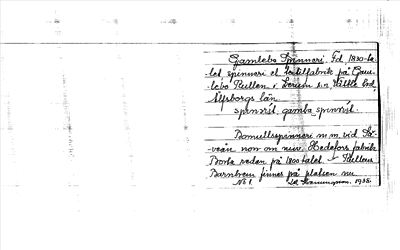 Gamlebo Spinneri. Fd. 1830-ta-
let, spinneri el. textilfabrik på Gam-
lebo Kullen i Lerum s:n, Vättle hd,
Älfsborgs län.
spinnrit, gamba spinnrit.
Bomullsspinneri m.m. vid Sä-
veån norr om nuv. Hedefors fabrik
Borta redan på 1800 talet. Kullens
Barnhem finnes på platsen nu
No 1. 1938.